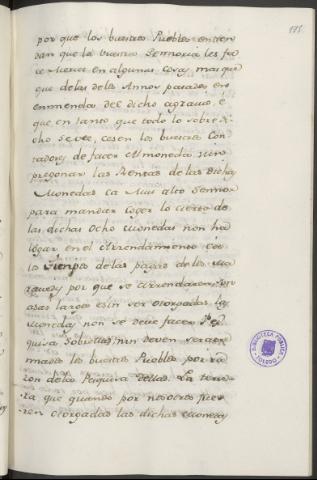 195.
por que los buestros Pueblos entien
dan que la buestra Sennoria les fa
ce Merct en algunas cosas, mas que
que de las de los Annos pasados en
enmienda del dicho agravio, è
que en tanto que todo lo sobre di
cho se vee, cesen los buestros Con
tadores de facer Almoneda, nin
pregonar las Rentas de las dichas
Monedas ca Mui alto Sennor
para mandar coger lo cierto de
las dichas ocho monedas non ha
lugar en el Arrendamiento con
los tiempos de las pagas de los ma
ravedis por que se arrendaren por
asas largos sin ser otorgadas las
monedas non se deve facer Pes
quisa sobrellas, nin deven ser apre
miados los buestros Pueblos por ra
zon de la Pesquisa dellas. La terce
ra que quando por nosotros fue
ren otorgadas las dichas monedas
BIBLIOTECA PUBLICA
TOLEDO